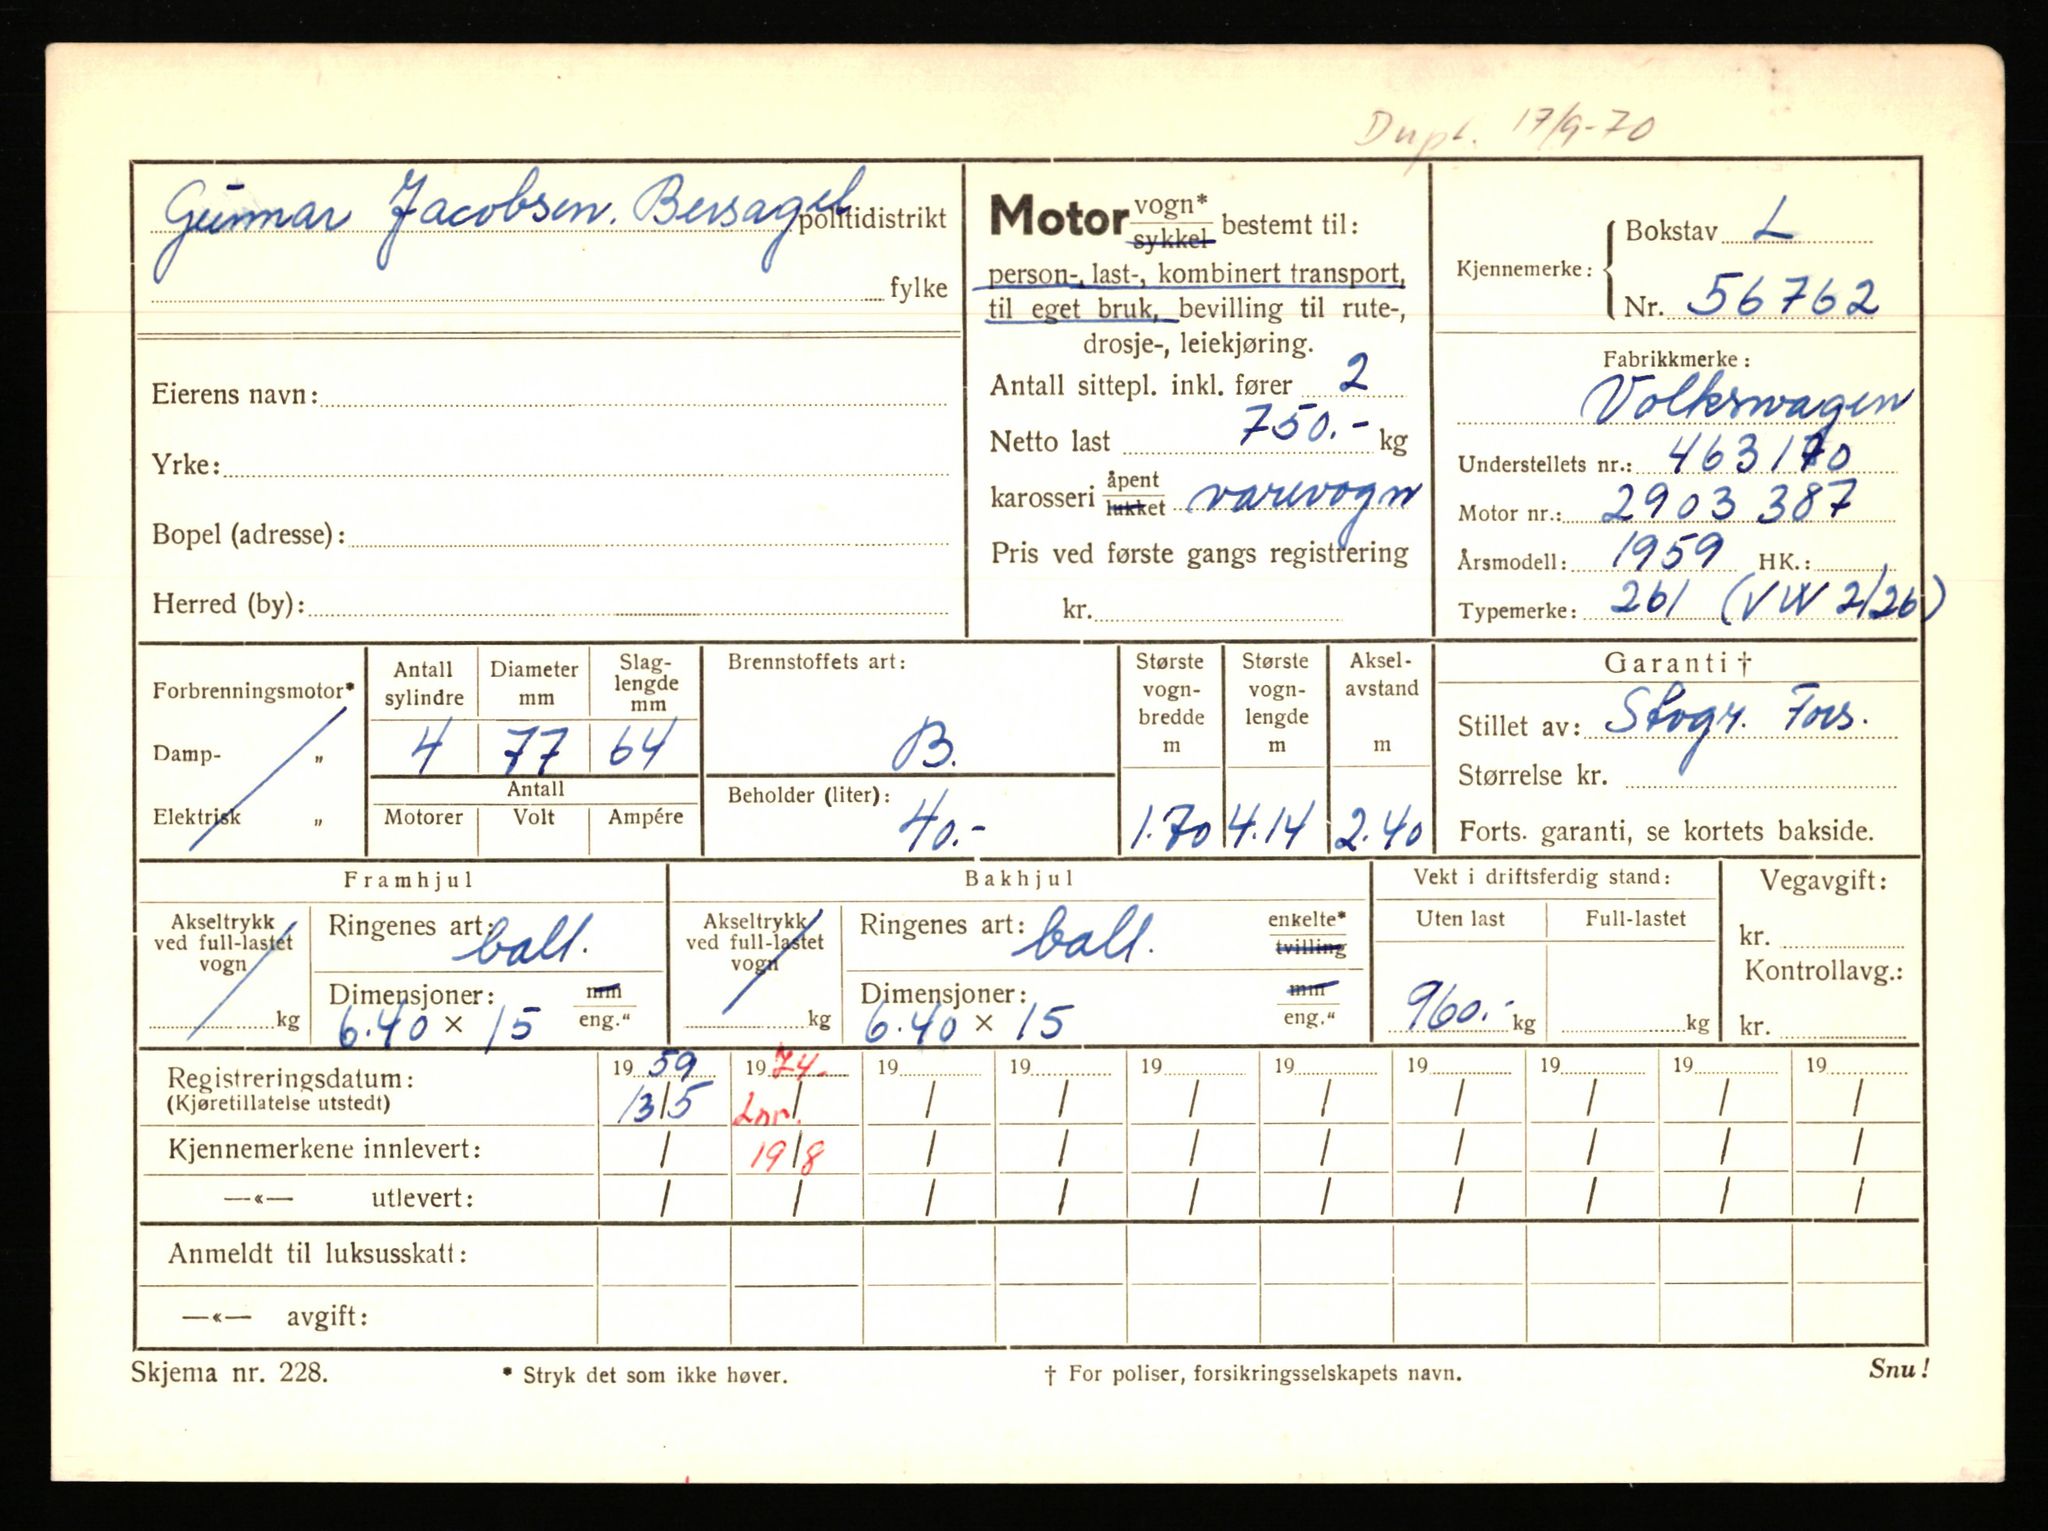 Dupl. 17/9-70
Gunnar Jacobsen. Bersagel politidistrikt
fylke
Eierens navn:
Yrke:
Bopel (adresse):
Herred (by):
Motor vogn* sykkel bestemt til:
person-, last-, kombinert transport,
til eget bruk, bevilling til rute-,
drosje-, leiekjøring.
Antall sittepl. inkl. fører 2
Netto last 750.- kg
karosseri åpent lukket varevogn
Pris ved første gangs registrering
kr.
Kjennemerke: Bokstav L
Nr. 56762
Fabrikkmerke:
Volkswagen
Understellets nr.: 463170
Motor nr.: 2903387
Årsmodell: 1959 HK.:
Typemerke: 261 (VW 2/26)
Forbrenningsmotor*
Damp- "
Elektrisk "
Antall sylindre 4
Diameter mm 77
Slag-lengde mm 64
Antall
Motorer Volt Ampére
Brennstoffets art:
B.
Beholder (liter):
40.-
Største vogn-bredde m 1.70
Største vogn-lengde m 4.14
Aksel-avstand m 2.40
Garanti †
Stillet av: Stvgr. Fors.
Størrelse kr.
Forts. garanti, se kortets bakside.
Framhjul
Akseltrykk ved full-lastet vogn kg
Ringenes art: ball.
Dimensjoner: mm eng."
6.40 × 15
Bakhjul
Akseltrykk ved full-lastet vogn kg
Ringenes art: ball. enkelte* tvilling
Dimensjoner: mm eng."
6.40 × 15
Vekt i driftsferdig stand:
Uten last Full-lastet
960.- kg kg
Vegavgift:
kr.
Kontrollavg.:
kr.
Registreringsdatum: 19 59 19 74. 19 19 19 19 19 19 19 19
(Kjøretillatelse utstedt) 13/5 Lnr. / / / / / / / / /
Kjennemerkene innlevert: / 19/8 / / / / / / / /
—«— utlevert: / / / / / / / / / /
Anmeldt til luksusskatt:
—«— avgift:
Skjema nr. 228. * Stryk det som ikke høver. † For poliser, forsikringsselskapets navn. Snu!